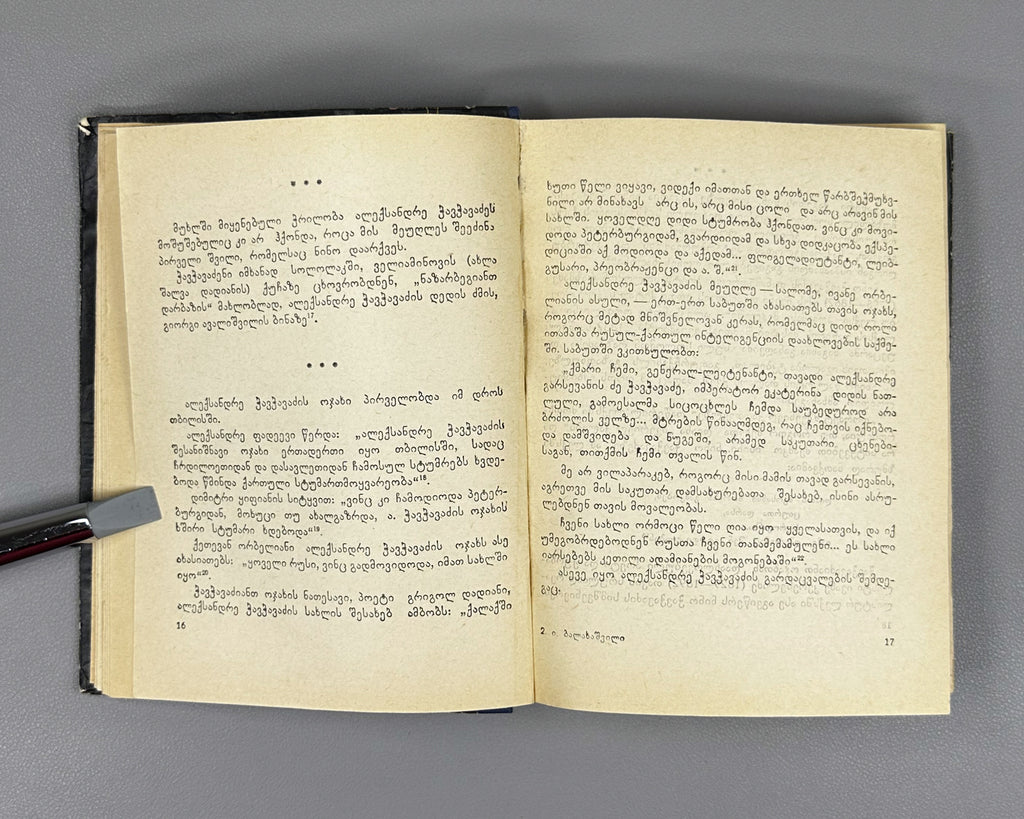 * * *
მუხლში მიყენებული ჭრილობა ალექსანდრე ჭავჭავაძეს
მოშუშებულიც კი არ ჰქონდა, როცა მის მეუღლეს შეეძინა
პირველი შვილი, რომელსაც ნინო დაარქვეს.
ჭავჭავაძენი იმხანად სოლოლაკში, ველიამინოვის (ახლა
შალვა დადიანის) ქუჩაზე ცხოვრობდნენ, „ნაზარბეგიანთ
დარბაზის“ მახლობლად, ალექსანდრე ჭავჭავაძის დედის ძმის,
გიორგი ავალიშვილის ბინაზე¹⁷.
* * *
ალექსანდრე ჭავჭავაძის ოჯახი პირველობდა იმ დროს
თბილისში.
ალექსანდრე ფადეევი წერდა: „ალექსანდრე ჭავჭავაძის
შესანიშნავი ოჯახი ერთადერთი იყო თბილისში, სადაც
ჩრდილოეთიდან და დასავლეთიდან ჩამოსულ სტუმრებს ხვდე-
ბოდა წმინდა ქართული სტუმართმოყვარეობა“¹⁸.
დიმიტრი ყიფიანის სიტყვით: „ვინც კი ჩამოდიოდა პეტერ-
ბურგიდან, მოხუცი თუ ახალგაზრდა, ა. ჭავჭავაძის ოჯახის
ხშირი სტუმარი ხდებოდა“¹⁹
ქეთევან ორბელიანი ალექსანდრე ჭავჭავაძის ოჯახს ასე
ახასიათებს: „ყოველი რუსი, ვინც გადმოვიდოდა, იმათ სახლში
იყო“²⁰.
ჭავჭავაძიანთ ოჯახის ნათესავი, პოეტი გრიგოლ დადიანი,
ალექსანდრე ჭავჭავაძის სახლის შესახებ ამბობს: „ქალაქში
16
ხუთი წელი ვიყავი, ვიდექი იმათთან და ერთხელ წარბშეჭმუხვ-
ნილი არ მინახავს არც ის, არც მისი ცოლი და არც არავინ მის
სახლში. ყოველდღე დიდი სტუმრობა ჰქონდათ, ვინც კი მოვი-
დოდა პეტერბურგიდამ, გვარდიიდამ და სხვა დიდკაცობა ექსპე-
დიციაში აქ მოდიოდა და აქედამ... ფლიგელადიუტანტი, ლეიბ-
გუსარი, პრეობრაჟენცი და ა. შ.“²¹.
ალექსანდრე ჭავჭავაძის მეუღლე — სალომე, ივანე ორბე-
ლიანის ასული, — ერთ-ერთ საბუთში ახასიათებს თავის ოჯახს,
როგორც მეტად მნიშვნელოვან კერას, რომელმაც დიდი როლი
ითამაშა რუსულ-ქართულ ინტელიგენციის დაახლოვების საქმე-
ში. საბუთში ვკითხულობთ:
„ქმარი ჩემი, გენერალ-ლეიტენანტი, თავადი ალექსანდრე
გარსევანის ძე ჭავჭავაძე, იმპერატორ ეკატერინა დიდის ნათ-
ლული, გამოესალმა სიცოცხლეს ჩემდა საუბედუროდ არა
ბრძოლის ველზე... მტრების წინააღმდეგ, რაც ჩემთვის იქნებო-
და დამშვიდება და ნუგეში, არამედ საკუთარი ცხენები-
საგან, თითქმის ჩემი თვალის წინ.
მე არ ვილაპარაკებ, როგორც მისი მამის თავად გარსევანის,
აგრეთვე მის საკუთარ დამსახურებათა შესახებ, ისინი ასრუ-
ლებდნენ თავის მოვალეობას.
ჩვენი სახლი ორმოცი წელი ღია იყო ყველასათვის, და იქ
უმეგობრდებოდნენ რუსთა ჩვენი თანამემამულენი... ეს სახლი
იარსებებს კეთილი ადამიანების მოგონებაში“²²
ასევე იყო ალექსანდრე ჭავჭავაძის გარდაცვალების შემდე-
გაც:
2. ი. ბალახაშვილი
17